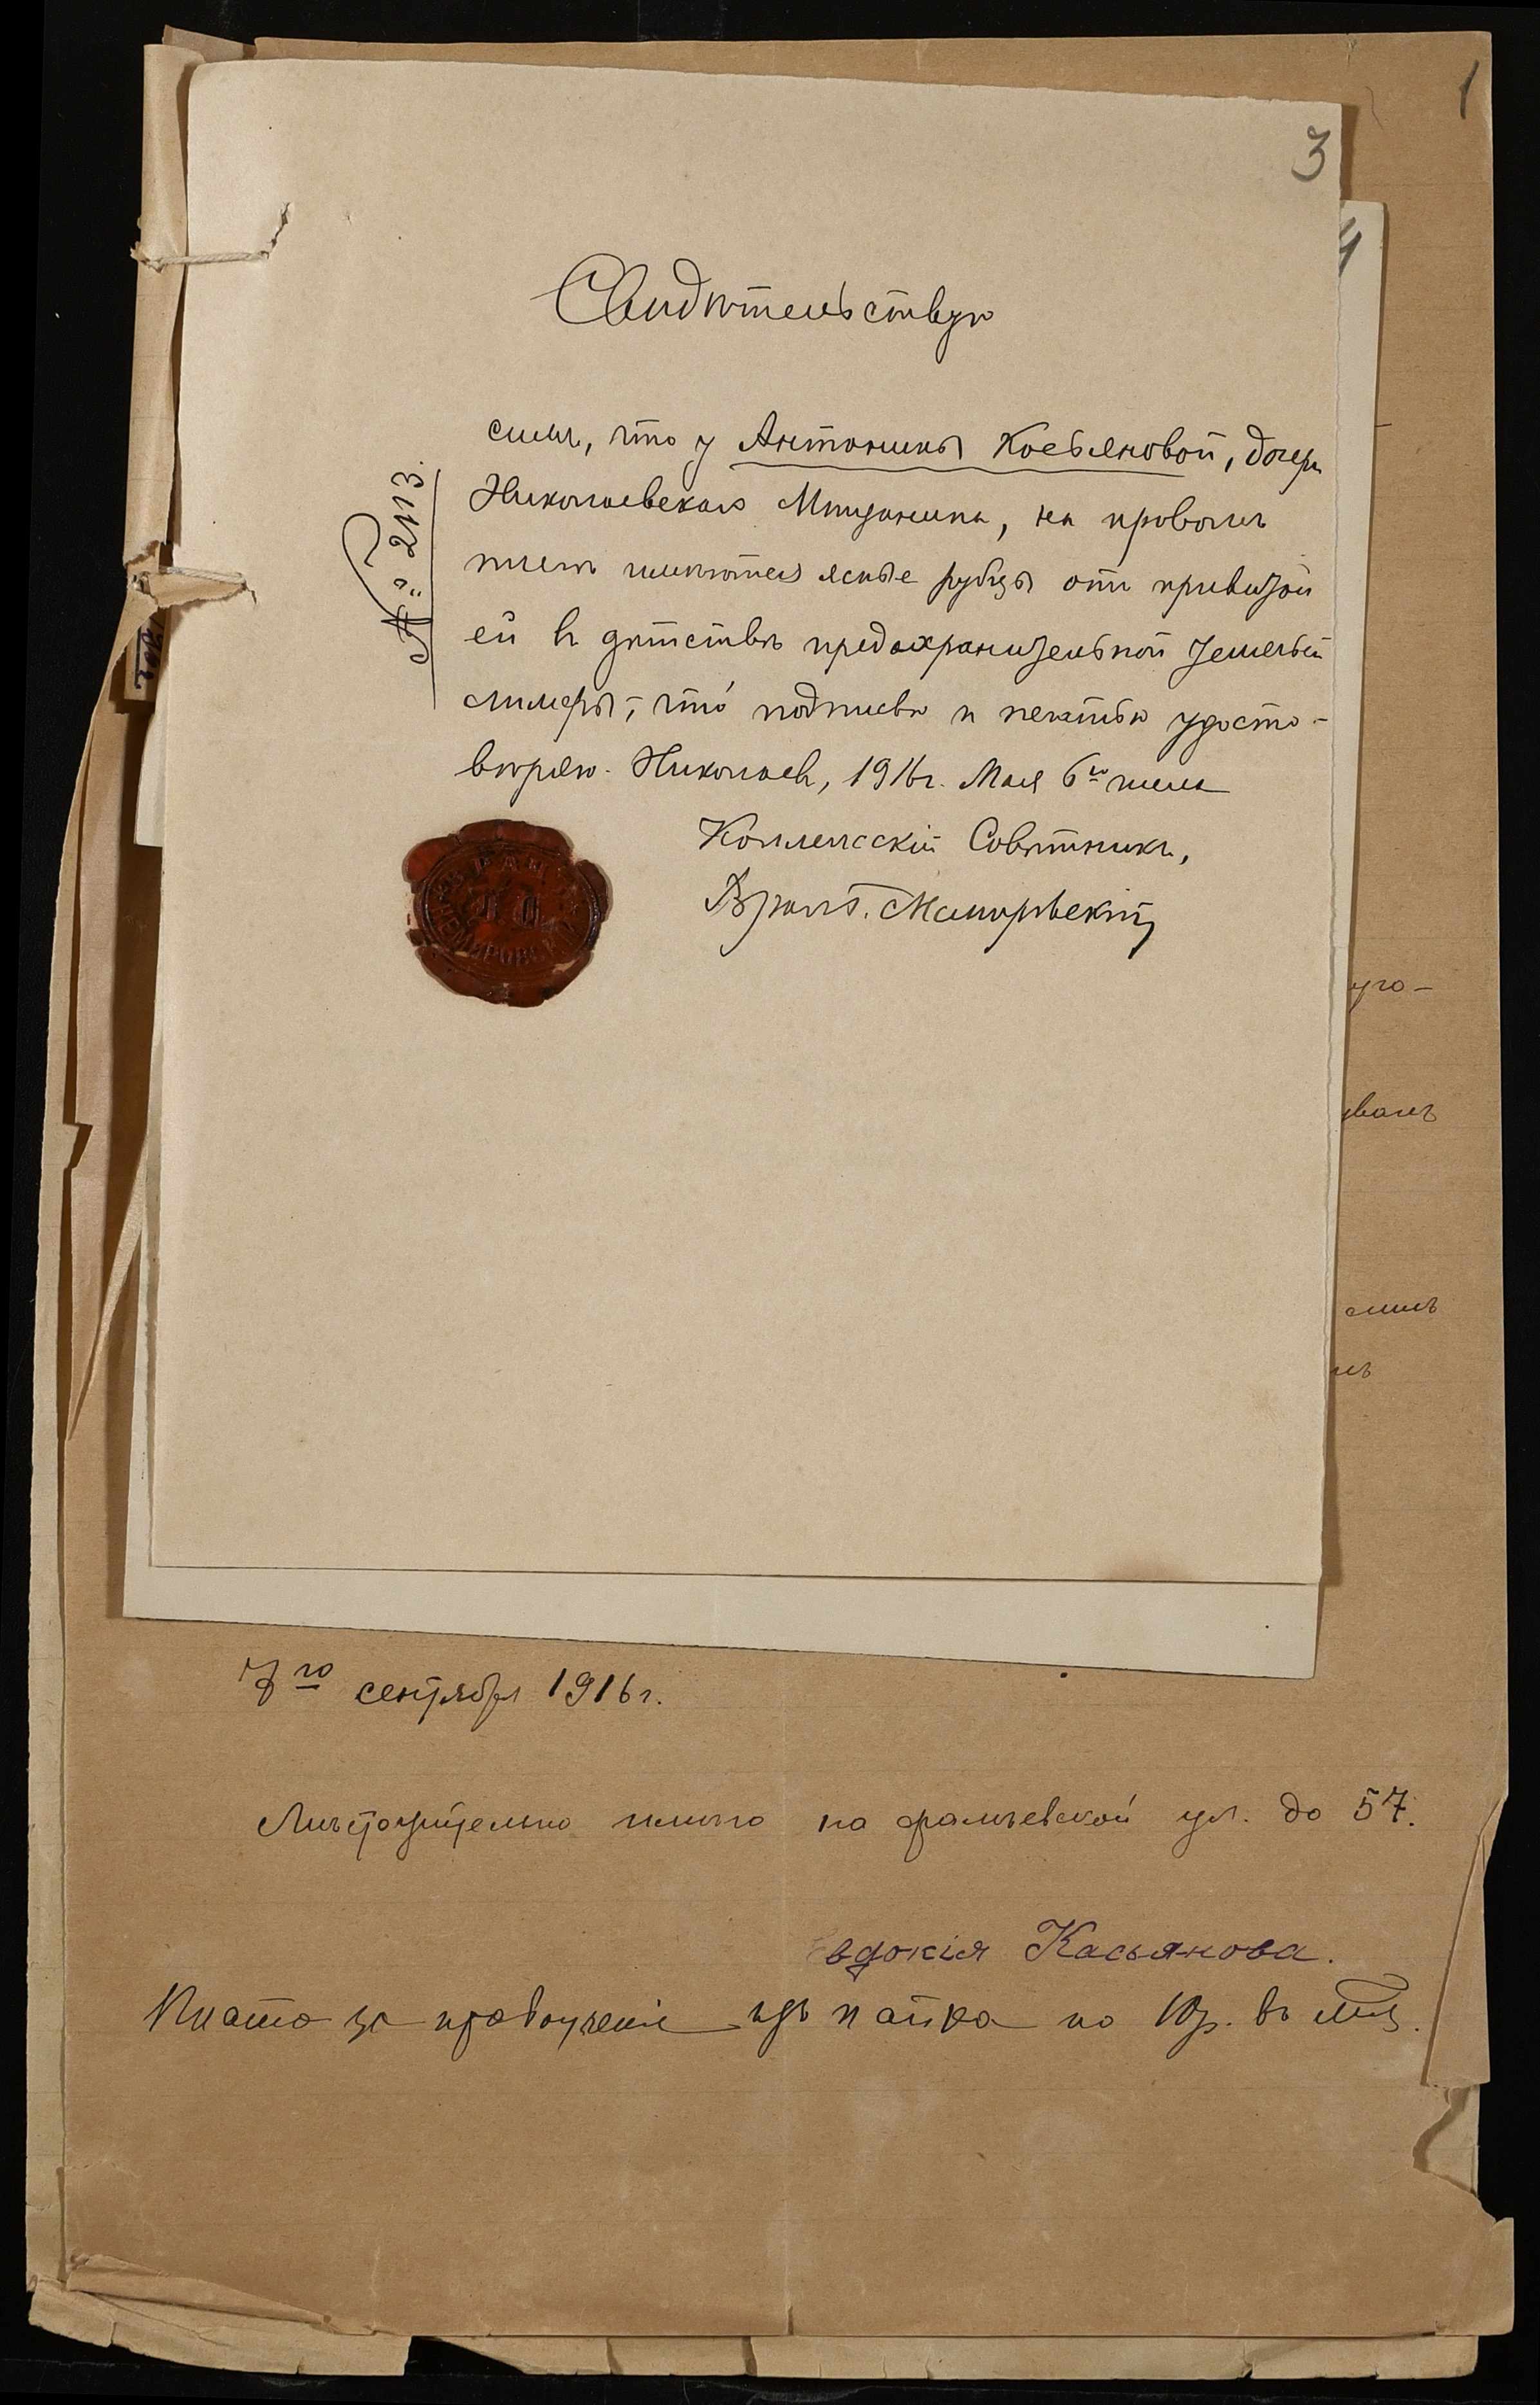 1
3
4
Свидѣтельствую
симъ, что у Антонины Косьяновой, дочери
Николаевскаго Мѣщанина, на правомъ
плечѣ имѣются ясные рубцы отъ привитой
ей въ дѣтствѣ предохранительной
что подписью и печатью удосто-
вѣряю. Николаевъ, 1916 г. Мая 6го дня
№ 2113.
Коллежскій Совѣтникъ,
Врачъ
7го сентября 1916 г.
Мѣстожительство имѣю на фалѣевской ул. до 57.
Евдокія Касьянова.
Плата за правоученіе по 10 р. въ